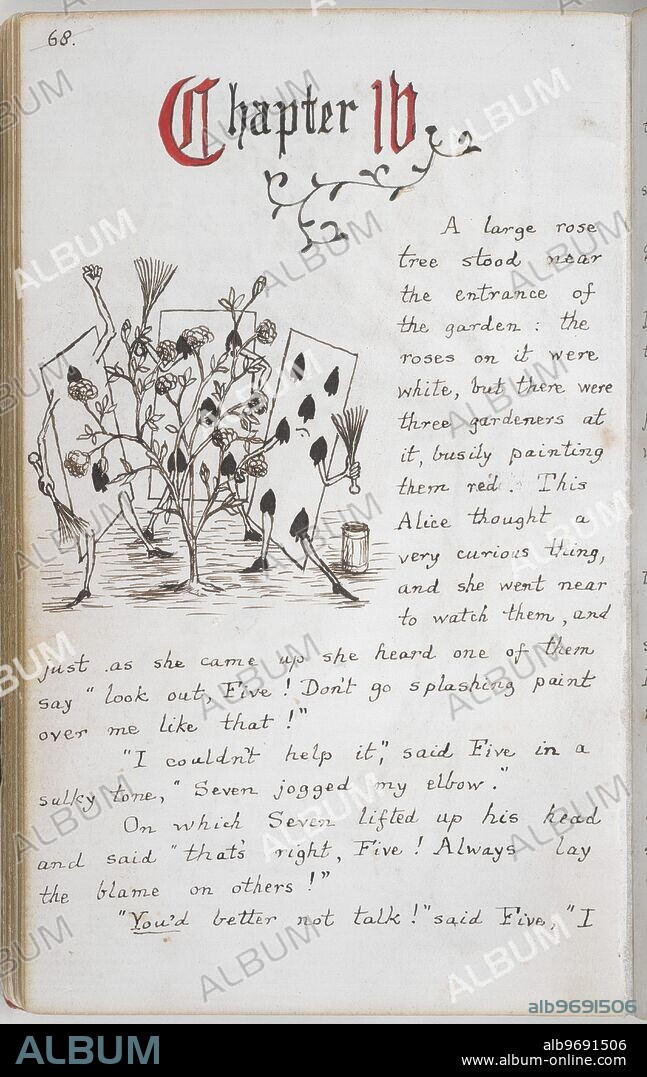 68.
Chapter IV
A large rose
tree stood near
the entrance of
the garden : the
roses on it were
white, but there were
three gardeners at
it, busily painting
them red. This
Alice thought a
very curious thing,
and she went near
to watch them, and
just as she came up she heard one of them
say "look out, Five! Don't go splashing paint
over me like that!"
"I couldn't help it," said Five in a
sulky tone, "Seven jogged my elbow."
On which Seven lifted up his head
and said "that's right, Five! Always lay
the blame on others!"
"You'd better not talk!" said Five, "I
alb9691506
ALBUM
alb9691506
www.album-online.com